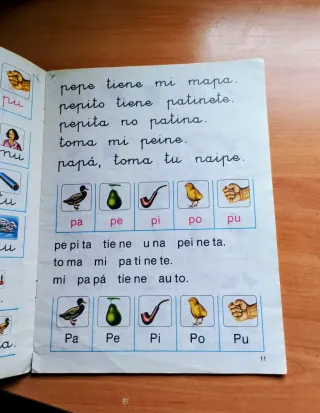 pu
mu
u
u
a.
pepe tiene mi mapa.
pepito tiene patinete.
pepita no patina.
toma mi peine.
papá, toma tu naipe.
pa pe pi po pu
pe pi ta tie ne u na pei ne ta.
to ma mi pa ti ne te.
mi pa pá tie ne au to.
Pa Pe Pi Po Pu
11